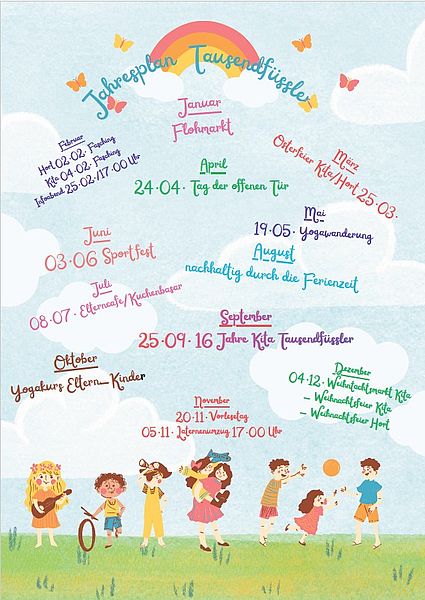 Jahresplan Tausendfüssler
Januar
Flohmarkt
Februar
Hort 02.02. Fasching
Kita 04.02. Fasching
Infoabend 25.02./17.00 Uhr
März
Osterfeier Kita/Hort 25.03.
April
24.04. Tag der offenen Tür
Mai
19.05. Yogawanderung
Juni
03.06 Sportfest
August
nachhaltig durch die Ferienzeit
Juli
08.07. Elterncafe/Kuchenbasar
September
25.09. 16 Jahre Kita Tausendfüssler
Oktober
Yogakurs Eltern_Kinder
Dezember
04.12. Weihntachtsmarkt Kita
- Weihnachtsfeier Kita
- Weihnachtsfeier Hort
November
20.11. Vorlesetag
05.11. Laternenumzug 17.00 Uhr